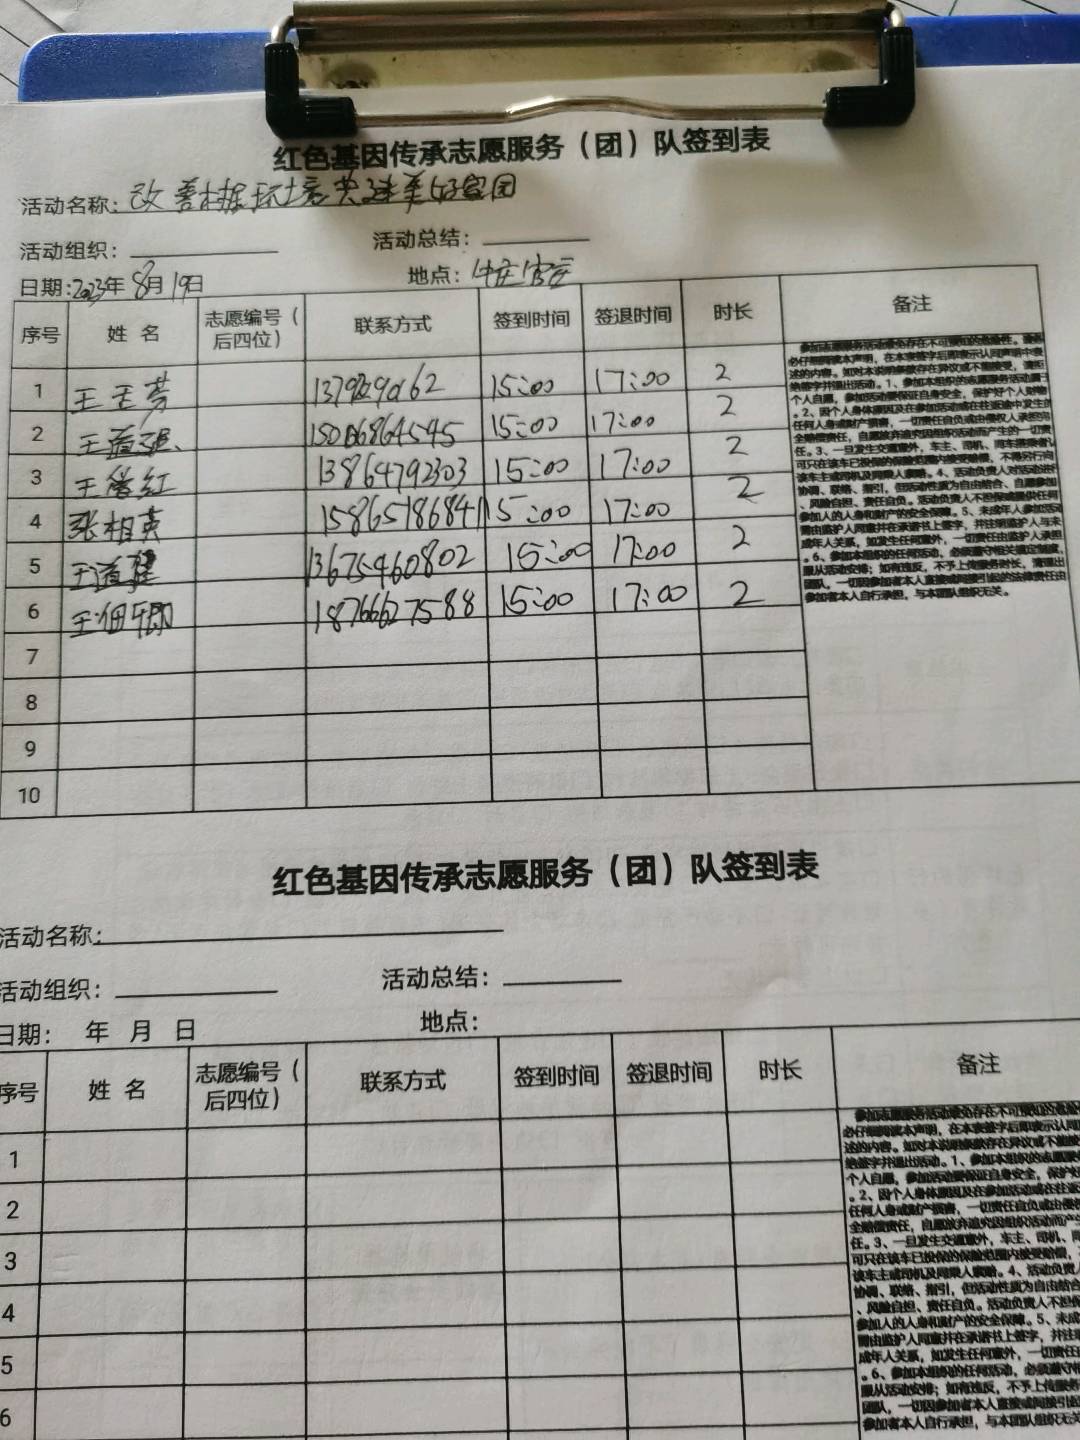 红色基因传承志愿服务（团）队签到表
活动名称: 改善人居环境 共建美好家园
活动组织: 活动总结:
日期:2023年8月19日 地点:
序号 姓名 志愿编号（后四位） 联系方式 签到时间 签退时间 时长 备注
1 15:00 17:00 2
2 王道 15:00 17:00 2
3 王 红 13864792303 15:00 17:00 2
4 张相英 15865186841 15:00 17:00 2
5 王道 13675460802 15:00 17:00 2
6 王 18766627588 15:00 17:00 2
7
8
9
10
参加志愿服务活动难免存在不可预知的危险性。请务
必仔细阅读本声明，在本表签字后即表示认同声明中表
述的内容。如对本说明条款存在异议或不能接受，请拒
绝签字并退出活动。1、参加本组织的志愿服务活动属于
个人自愿，参加活动要保证自身安全，保护好个人财物
。2、因个人身体原因及在参加活动或在往返途中发生的
任何人身或财产损害，一切责任自负或由侵权人承担完
全赔偿责任，自愿放弃追究因组织活动而产生的一切责
任。3、一旦发生交通意外，车主、司机、同车搭乘者认
可只在该车已投保的保险范围内接受赔偿，不得另行向
该车主或司机及同乘人索赔。4、活动负责人对活动进行
协调、联络、指引，但活动性质为自由结合、自愿参加
、风险自担、责任自负。活动负责人不担保或提供任何
参加人的人身和财产的安全保障。5、未成年人参加活动
需由监护人同意并在承诺书上签字，并注明监护人与未
成年人关系，如发生任何意外，一切责任由监护人承担
。6、参加本组织的任何活动，必须遵守相关规定制度，
服从活动安排；如有违反，不予上传服务时长，清理出
团队，一切因参加者本人直接或间接引起的法律责任由
参加者本人自行承担，与本团队组织无关。
红色基因传承志愿服务（团）队签到表
活动名称:
活动组织: 活动总结:
日期: 年 月 日 地点:
序号 姓名 志愿编号（后四位） 联系方式 签到时间 签退时间 时长 备注
1
2
3
4
5
6
参加志愿服务活动难免存在不可预知的危险
必仔细阅读本声明，在本表签字后即表示认同
述的内容。如对本说明条款存在异议或不能接
绝签字并退出活动。1、参加本组织的志愿服务
个人自愿，参加活动要保证自身安全，保护好
。2、因个人身体原因及在参加活动或在往返
任何人身或财产损害，一切责任自负或由侵权
全赔偿责任，自愿放弃追究因组织活动而产生
任。3、一旦发生交通意外，车主、司机、同
可只在该车已投保的保险范围内接受赔偿，
该车主或司机及同乘人索赔。4、活动负责人
协调、联络、指引，但活动性质为自由结合
、风险自担、责任自负。活动负责人不担保
参加人的人身和财产的安全保障。5、未成
需由监护人同意并在承诺书上签字，并注明
成年人关系，如发生任何意外，一切责任由
。6、参加本组织的任何活动，必须遵守相
服从活动安排；如有违反，不予上传服务
团队，一切因参加者本人直接或间接引起
参加者本人自行承担，与本团队组织无关